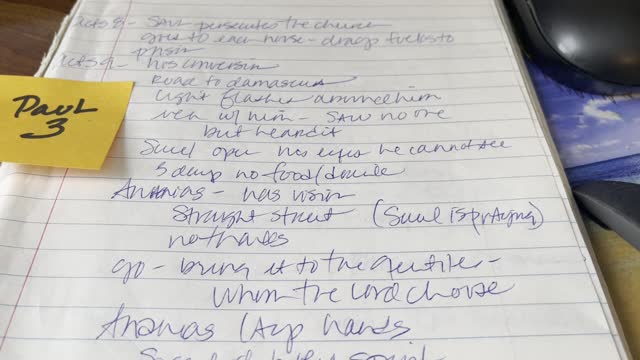 Acts 8 - Saul persecutes the church
goes to each house - drags to
prison
Acts 9 - his conversion
Road to damascus
light flashes around him
men w/ him - saw no one
but heard it
Saul open his eyes he cannot see
3 days no food/drink
Ananias - has vision
Straight street (Saul is praying)
go - bring it to the gentiles -
whom the lord chose
Ananias lays hands
PauL
3